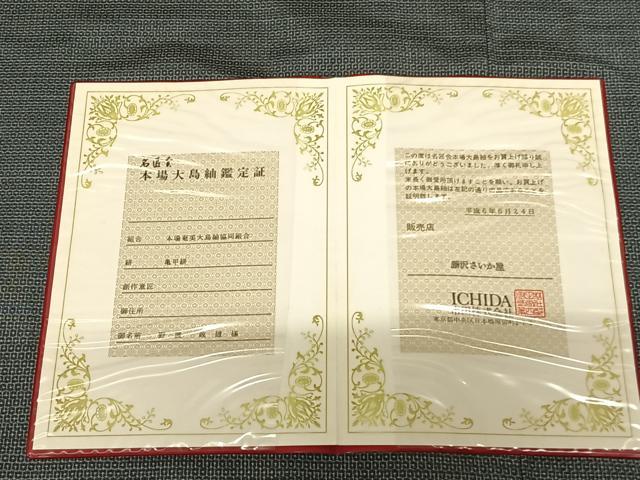 名匠会
本場大島紬鑑定証
組合 本場奄美大島紬協同組合
絣 亀甲絣
創作意匠
御住所
御名前
この度は名匠会本場大島紬をお買上げ賜り誠
にありがとうございました。厚く御礼申し上
げます。
末長く御愛用頂けますことを願い、お買上げ
の本場大島紬は左記の通り
証明致します。
平成6年5月24日
販売店
藤沢さいか屋
ICHIDA
市田株式会社
東京都中央区日本橋